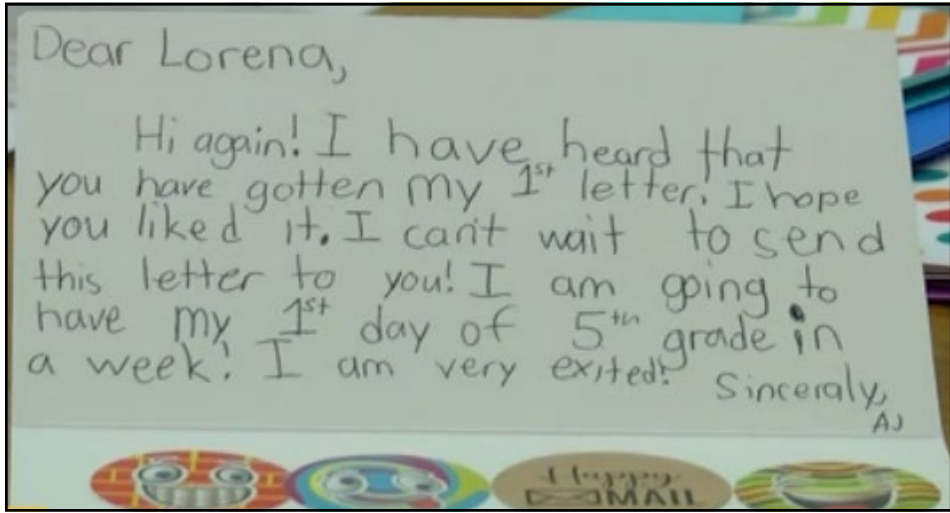 Dear Lorena,
Hi again! I have heard that
you have gotten my 1st letter. I hope
you liked it. I can't wait to send
this letter to you! I am going to
have my 1st day of 5th grade in
a week! I am very exited!
Sinceraly,
AJ
Happy
MAIL